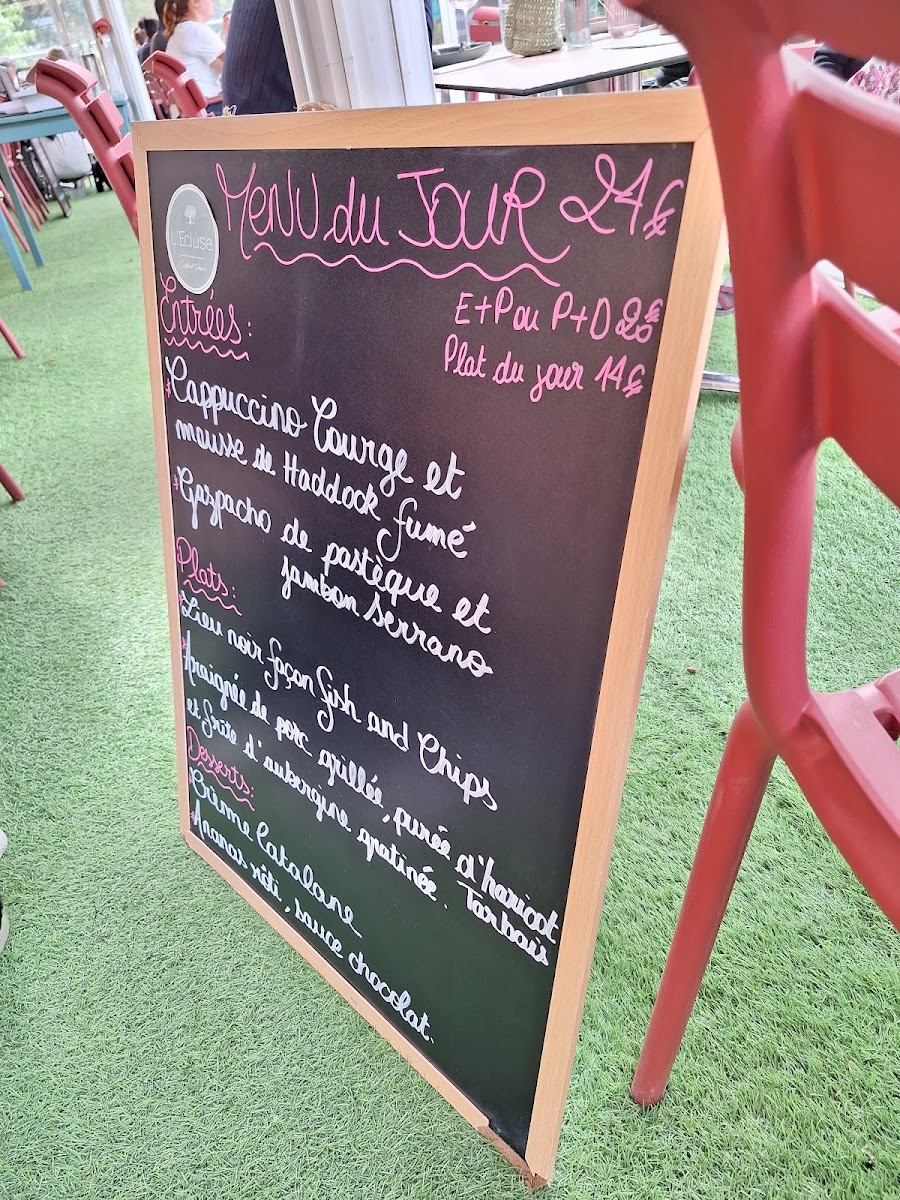 MENU du JOUR 24€
L'Ecluse
E+P ou P+D 20€
Plat du jour 14€
Entrées:
* Cappuccino Courge et
mousse de Haddock fumé
* Gazpacho de pastèque et
jambon Serrano
Plats:
* Lieu noir façon fish and Chips
* Araignée de porc grillée, purée d'haricot
Tarbais
et frite d'aubergine gratinée.
Desserts:
* Crème Catalane
* Ananas rôti, sauce chocolat.